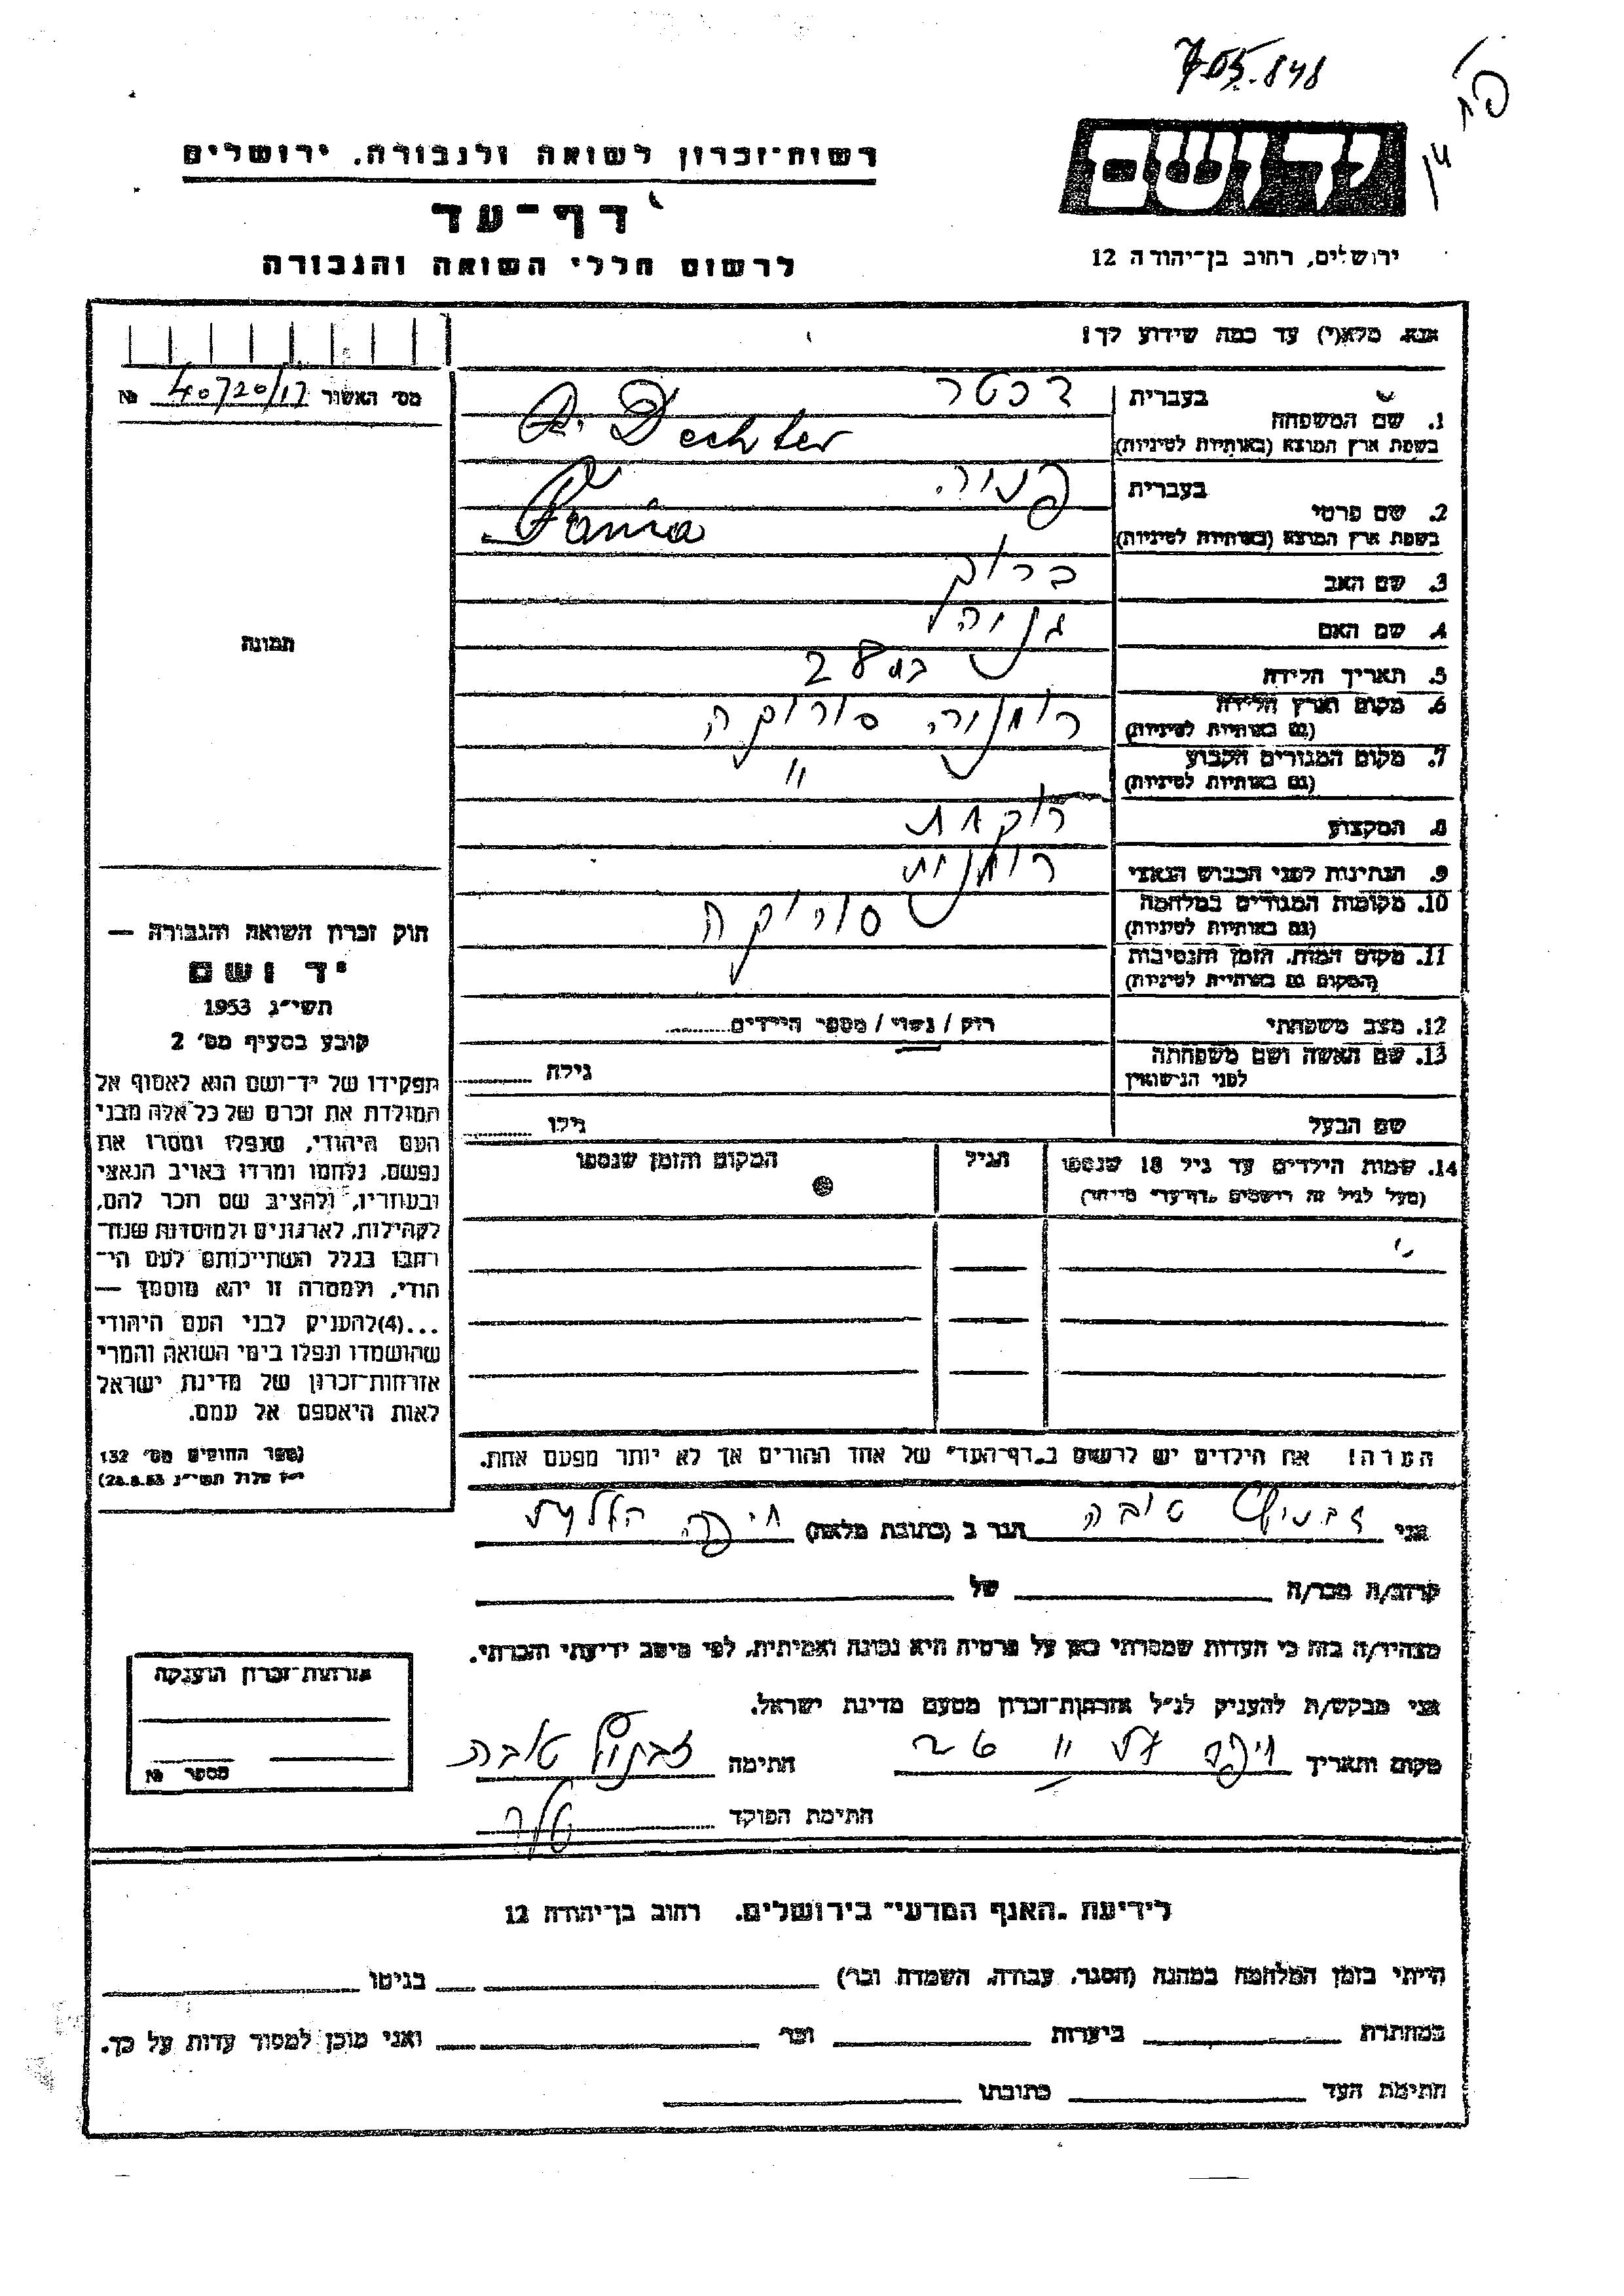 705.848
יד ושם
רשות־זכרון לשואה ולגבורה. ירושלים
דף־עד
לרשום חללי השואה והגבורה
ירושלים, רחוב בן־יהודה 12
אנא מלא(י) עד כמה שידוע לך!
מס׳ האשור 40720/17 №
1. שם המשפחה
בעברית דכטר
בשפת ארץ המוצא (באותיות לטיניות) Dechter
2. שם פרטי
בעברית פניה
בשפת ארץ המוצא (באותיות לטיניות) Fania
3. שם האב ברוך
4. שם האם
5. תאריך הלידה
6. מקום וארץ הלידה רומניה סורוקה
(גם באותיות לטיניות)
7. מקום המגורים הקבוע "
(גם באותיות לטיניות)
8. המקצוע רוקחת
9. הנתינות לפני הכבוש הנאצי רומנית
10. מקומות המגורים במלחמה סורוקה
(גם באותיות לטיניות)
11. מקום המות, הזמן והנסיבות
(המקום גם באותיות לטיניות)
12. מצב משפחתי רוק / נשוי / מספר הילדים
13. שם האשה ושם משפחתה
לפני הנישואין
גילה
שם הבעל גילו
14. שמות הילדים עד גיל 18 שנספו
(מעל לגיל זה רושמים „דף־עד” מיוחד)
הגיל
המקום והזמן שנספו
תמונה
חוק זכרון השואה והגבורה —
יד ושם
תשי״ג 1953
קובע בסעיף מס׳ 2
תפקידו של יד־ושם הוא לאסוף אל
המולדת את זכרם של כל אלה מבני
העם היהודי, שנפלו ומסרו את
נפשם, נלחמו ומרדו באויב הנאצי
ובעוזריו, ולהציב שם וזכר להם,
לקהילות, לארגונים ולמוסדות שנח־
רבו בגלל השתייכותם לעם הי־
הודי, ולמטרה זו יהא מוסמך —
...(4)להעניק לבני העם היהודי
שהושמדו ונפלו בימי השואה והמרי
אזרחות־זכרון של מדינת ישראל
לאות היאספם אל עמם.
(ספר החוקים מס׳ 132
י״ז אלול תשי״ג 28.8.53)
הערה! את הילדים יש לרשום ב„דף־העד” של אחד ההורים אך לא יותר מפעם אחת.
אני טובה הגר ב (כתובת מלאה) חיפה
קרוב/ה מכר/ה של
מצהיר/ה בזה כי העדות שמסרתי כאן על פרטיה היא נכונה ואמיתית, לפי מיטב ידיעתי והכרתי.
אני מבקש/ת להעניק לנ״ל אזרחות־זכרון מטעם מדינת ישראל.
מקום ותאריך חיפה חתימה טובה
חתימת הפוקד
אזרחות־זכרון הוענקה
מספר №
לידיעת „האגף המדעי” בירושלים, רחוב בן־יהודה 12
הייתי בזמן המלחמה במחנה (הסגר, עבודה, השמדה וכו׳) בגיטו
במחתרת ביערות וכו׳ ואני מוכן למסור עדות על כך.
חתימת העד כתובתו